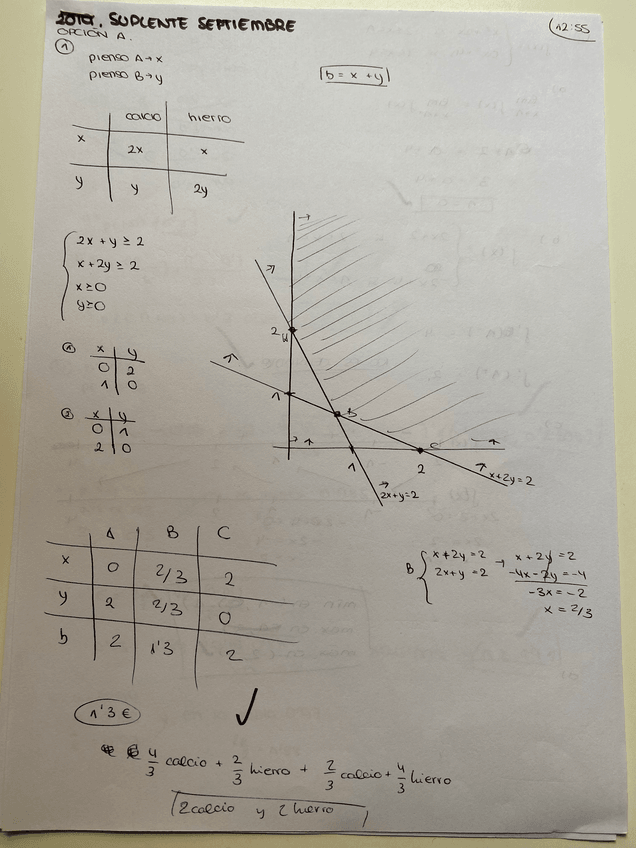 2019. SUPLENTE SEPTIEMBRE
12:55
OPCIÓN A.
1
pienso A→x
pienso B→y
b = x + y
calcio hierro
x 2x x
y y 2y
2x + y ≥ 2
x + 2y ≥ 2
x ≥ 0
y ≥ 0
1 x y
0 2
1 0
2 x y
0 1
2 0
2 A
1
B
C
1 2
x+2y=2
2x+y=2
A B C
x 0 2/3 2
y 2 2/3 0
b 2 1'3 2
B x + 2y = 2 → x + 2y = 2
2x + y = 2 -4x - 2y = -4
-3x = -2
x = 2/3
1'3 €
4/3 calcio + 2/3 hierro + 2/3 calcio + 4/3 hierro
2 calcio y 2 hierro